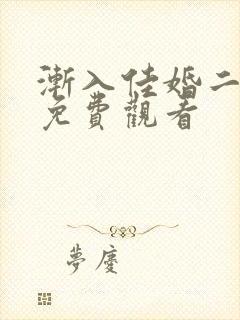 漸入佳婚二
免費觀看
夢慶